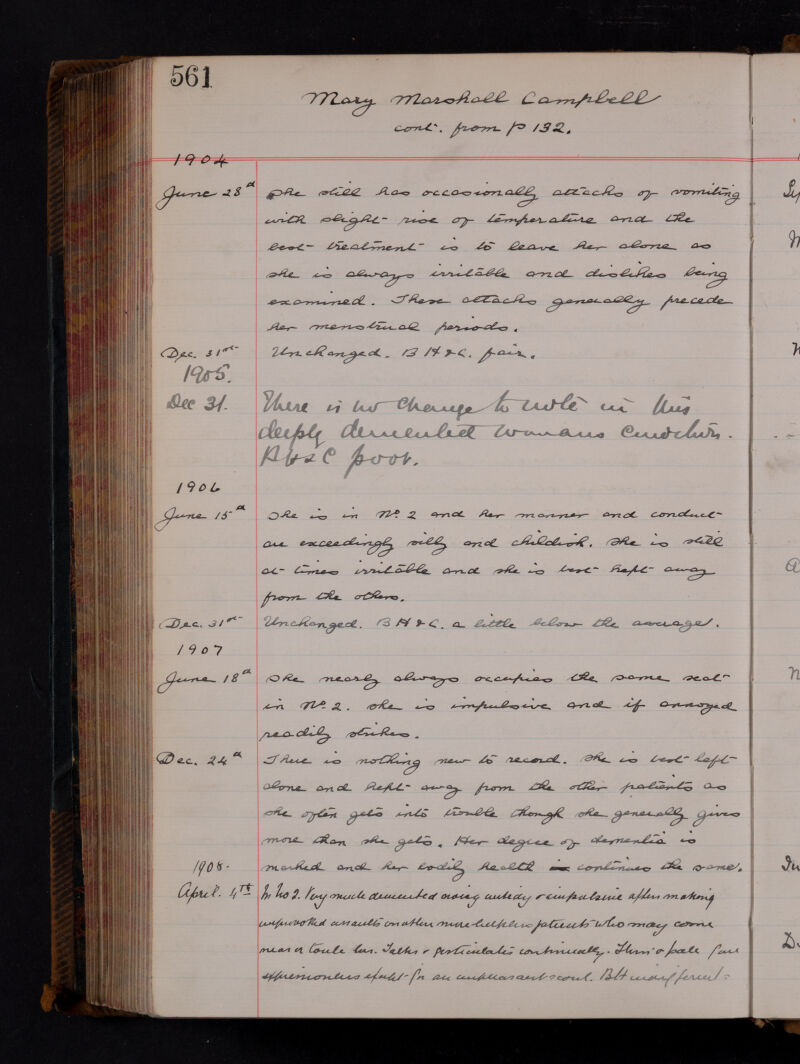 561
Mary Marshall Campbell
cont. from p 132.
1904
June 28th She still has occasionally attacks of vomiting
with slight rise of temperature and the
best treatment is to leave her alone as
she is always irritable and dislikes being
examined. These attacks generally precede
her menstrual periods.
Dec. 31st Unchanged. B H & C. fair.
1905.
Dec 31. There is no change to note in this
deeply demented womans condition.
B H & C poor.
1906
June 15th She is in No. 2 and her manner and conduct
are exceedingly silly and childish. She is still
at times irritable and she is best kept away
from the others.
Dec. 31st Unchanged. B H & C. a little below the average.
1907
June 18th She nearly always occupies the same seat
in No. 2. She is impulsive and if annoyed
readily strikes.
Dec. 24th There is nothing new to record. She is best left
alone and kept away from the other patients as
she often gets into trouble though she generally gives
more than she gets. Her degree of dementia is
1908. marked and her bodily health continues the same.
April. 4th In No 2. Very much demented untidy & impulsive often making
unprovoked assaults on other more helpless patients who may come
near or touch her. Talks & gesticulates continually. Thin & pale face
expressionless except for an unpleasant scowl. BH indifferent.